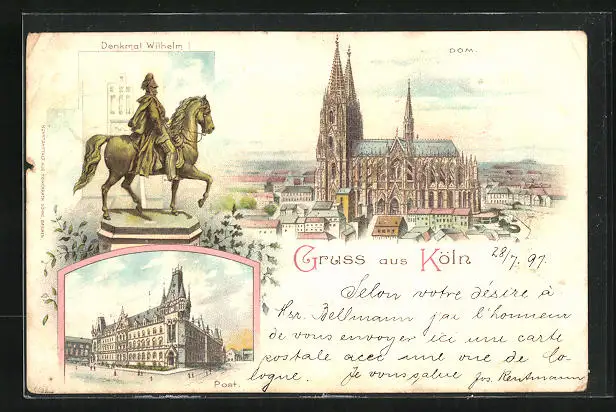 Denkmal Wilhelm I
DOM.
Gruss aus Köln
28/7. 97.
Selon votre désire à
Hsr. Bellmann j'ai l'honneur
de vous envoyer ici une carte
postale acec une vue de Co-
logne. Je vous salue Jos. Rentmann
Post.